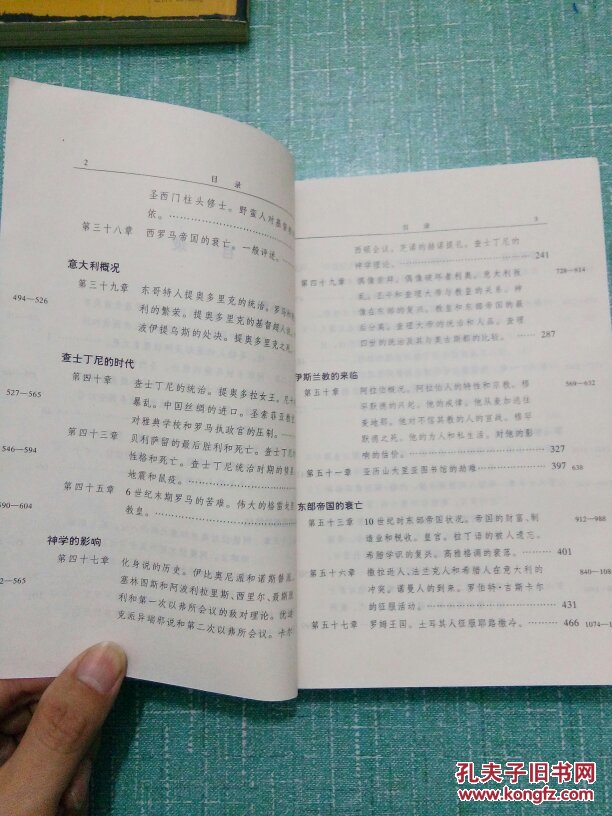 2
目 录
圣西门柱头修士。野蛮人对基督教
依。
第三十八章 西罗马帝国的衰亡。一般评述。
意大利概况
第三十九章 东哥特人提奥多里克的统治。罗马和
494—526
利的繁荣。提奥多里克的基督超人说。
波伊提乌斯的处决。提奥多里克之死。
查士丁尼的时代
第四十章 查士丁尼的统治。提奥多拉女王。尼卡
527—565
暴乱。中国丝绸的进口。圣索菲亚教
对雅典学校和罗马执政官的压制。
第四十三章 贝利萨留的最后胜利和死亡。查士丁尼
546—594
性格和死亡。查士丁尼统治时期的
地震和鼠疫。
第四十五章 6世纪末期罗马的苦难。伟大的格雷
590—604
教皇。
神学的影响
第四十七章 化身说的历史。伊比奥尼派和诺斯替
2—565
塞林图斯和阿波利拉里斯、西里尔、聂斯
利和第一次以弗所会议的敌对理论。优
克派异端邪说和第二次以弗所会议。卡尔
目 录
3
西顿会议。芝诺的赫诺提扎。查士丁尼的
神学理论。 241
第四十九章 偶像崇拜。偶像破坏者利奥。意大利叛 728—814
乱。丕平和查理大帝与教皇的关系。神
像在东部的复兴。教皇和东部帝国的最
后分离。查理大帝的统治和人品。查理
四世的统治及其与奥古斯都的比较。 287
伊斯兰教的来临
第五十章 阿拉伯概况。阿拉伯人的特性和宗教。穆 569—632
罕默德的兴起。他的戒律。他从麦加逃往
麦地那。他对不信其教的人的宣战。穆罕
默德之死。他的为人和私生活。对他的影
响的估价。 327
第五十一章 亚历山大里亚图书馆的劫难 397 638
东部帝国的衰亡
第五十三章 10世纪时东部帝国状况。帝国的财富、制 912—988
造业和税收。皇官。拉丁语的被人遗忘。
希腊学识的复兴。高雅格调的衰落。 401
第五十六章 撒拉逊人、法兰克人和希腊人在意大利的 840—108
冲突。诺曼人的到来。罗伯特·吉斯卡尔
的征服活动。 431
第五十七章 罗姆王国。土耳其人征服耶路撒冷。 466 1074—1
孔夫子旧书网
www.kongfz.com